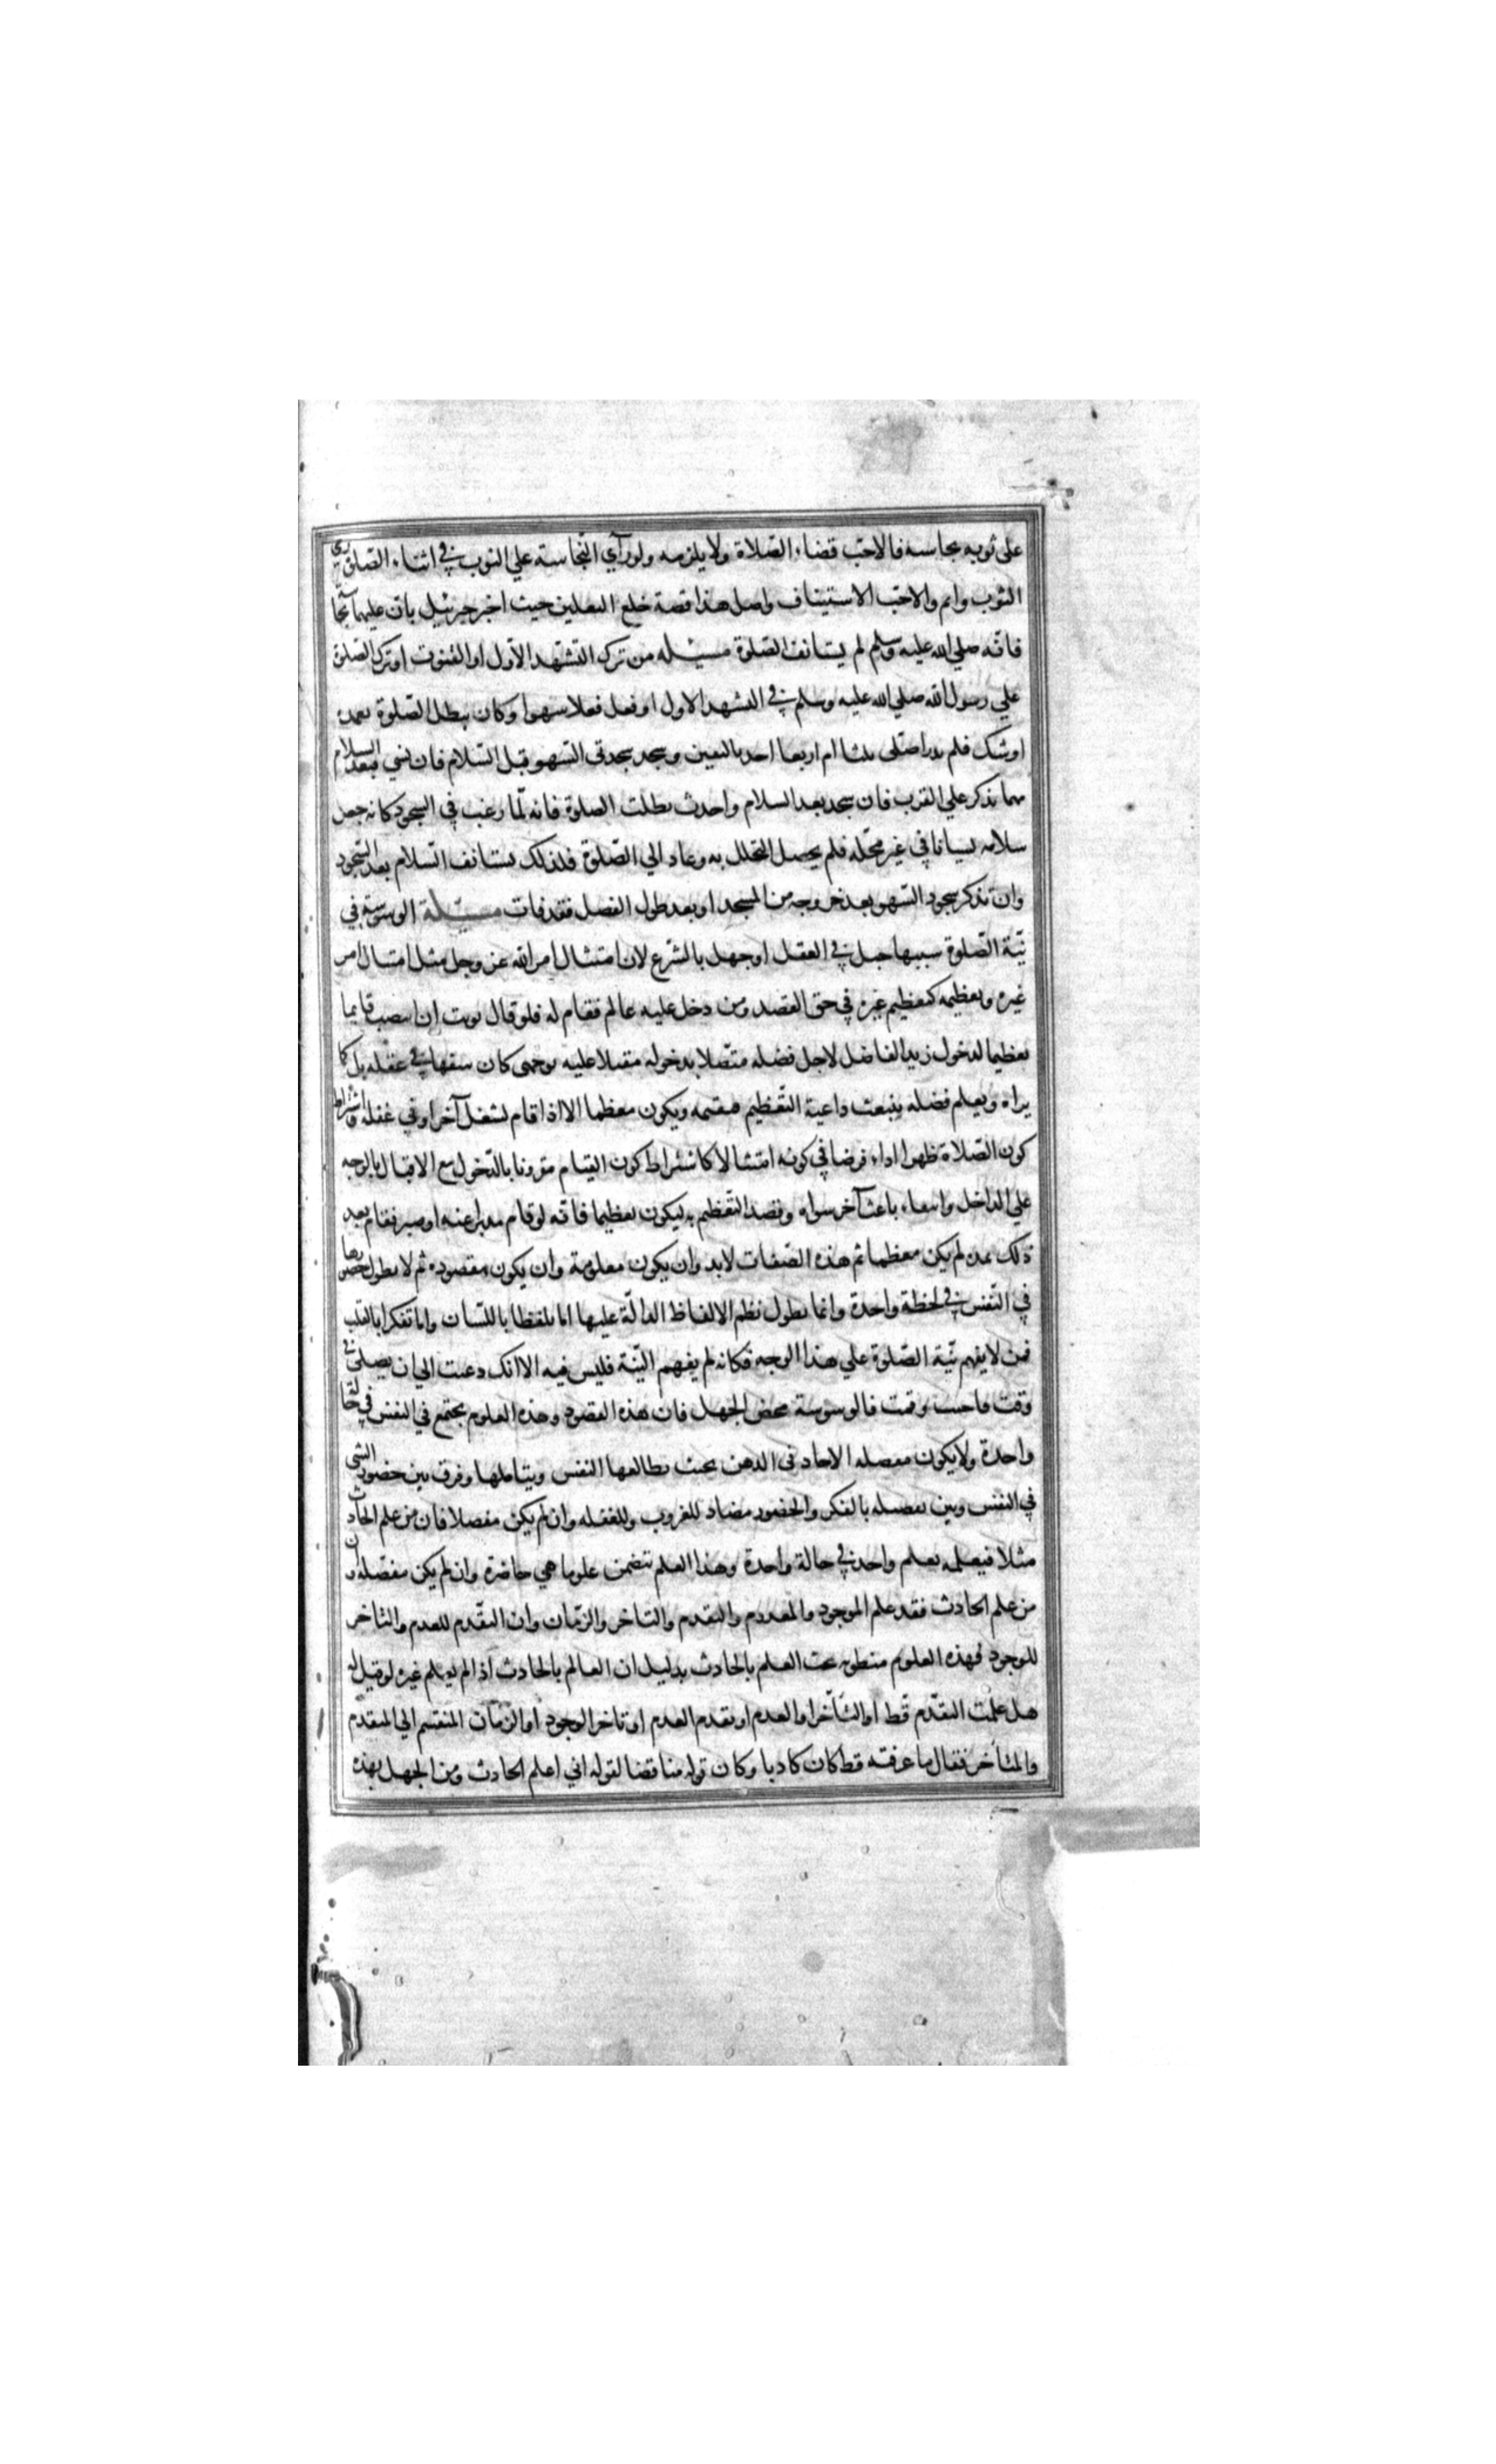 على ثوبه نجاسة فالاحب قضاء الصلاة ولا يلزمه ولو رآي النجاسة علي الثوب في اثناء الصلوة رمي
الثوب واتم والاحب الاستيناف واصل هذا قصة خلع النعلين حيث اخبر جبرئيل بان عليهما نجا
فانه صلي الله عليه وسلم لم يستانف الصلوة مسئله من ترك التشهد الاول او القنوت او ترك الصلوة
علي رسول الله صلي الله عليه وسلم في التشهد الاول او فعل فعلا سهوا وكان يبطل الصلوة بعمده
او شك فلم يدر اصلى ثلثا ام اربعا اخذ باليقين وسجد سجدتي السهو قبل السلام فان نسي فبعد السلام
مهما تذكر علي القرب فان سجد بعد السلام واحدث بطلت الصلوة فانه لما رغب في السجود كانه جعل
سلامه نسيانا في غير محله فلم يحصل التحلل به وعاد الي الصلوة فلذلك يستانف السلام بعد السجود
وان تذكر سجود السهو بعد خروجه من المسجد او بعد طول الفصل فقد فات مسئلة الوسوسة في
نية الصلوة سببها خبل في العقل او جهل بالشرع لان امتثال امر الله عز وجل مثل امتثال امر
غيره وتعظيمه كتعظيم غيره في حق القصد ومن دخل عليه عالم فقام له فلو قال نويت ان انتصب قايما
تعظيما لدخول زيد الفاضل لاجل فضله متصلا بدخوله مقبلا عليه بوجهي كان سفها في عقله بل كما
يراه ويعلم فضله ينبعث داعية التعظيم فيقيمه ويكون معظما الا اذا قام لشغل آخر او في غفلة واشتراط
كون الصلاة ظهرا اداء فرضا في كونه امتثالا كاشتراط كون القيام مقرونا بالدخول مع الاقبال بالوجه
علي الداخل وانتفاء باعث آخر سواه وقصد التعظيم به ليكون تعظيما فانه لو قام مدبرا عنه او صبر فقام بعد
ذلك بمدة لم يكن معظما ثم هذه الصفات لا بد وان يكون معلومة وان يكون مقصودة ثم لا يطول حضورها
في النفس في لحظة واحدة وانما يطول نظم الالفاظ الدالة عليها اما تلفظا باللسان واما تفكرا بالقلب
فمن لا يفهم نية الصلوة علي هذا الوجه فكانه لم يفهم النية فليس فيه الا انك دعيت الي ان يصلي في
وقت فاجبت وقمت فالوسوسة محض الجهل فان هذه القصود وهذه العلوم يجتمع في النفس في حالة
واحدة ولا يكون مفصله الاحاد في الذهن بحيث يطالعها النفس ويتاملها وفرق بين حضور الشي
في النفس وبين تفصيله بالفكر والحضور مضاد للعزوب وللغفله وان لم يكن مفصلا فان من علم الحادث
مثلا فيعلمه بعلم واحد في حالة واحدة وهذا العلم يتضمن علوما هي حاضرة وان لم يكن مفصلة فان
من علم الحادث فقد علم الموجود والمعدوم والتقدم والتاخر والزمان وان التقدم للعدم والتاخر
للوجود فهذه العلوم منطوية تحت العلم بالحادث بدليل ان العالم بالحادث اذا لم يعلم غيره لو قيل له
هل علمت التقدم قط او التأخر او العدم او تقدم العدم او تاخر الوجود او الزمان المنقسم الي المتقدم
والمتأخر فقال ما عرفته قط كان كاذبا وكان قوله مناقضا لقوله اني اعلم الحادث ومن الجهل بهذه